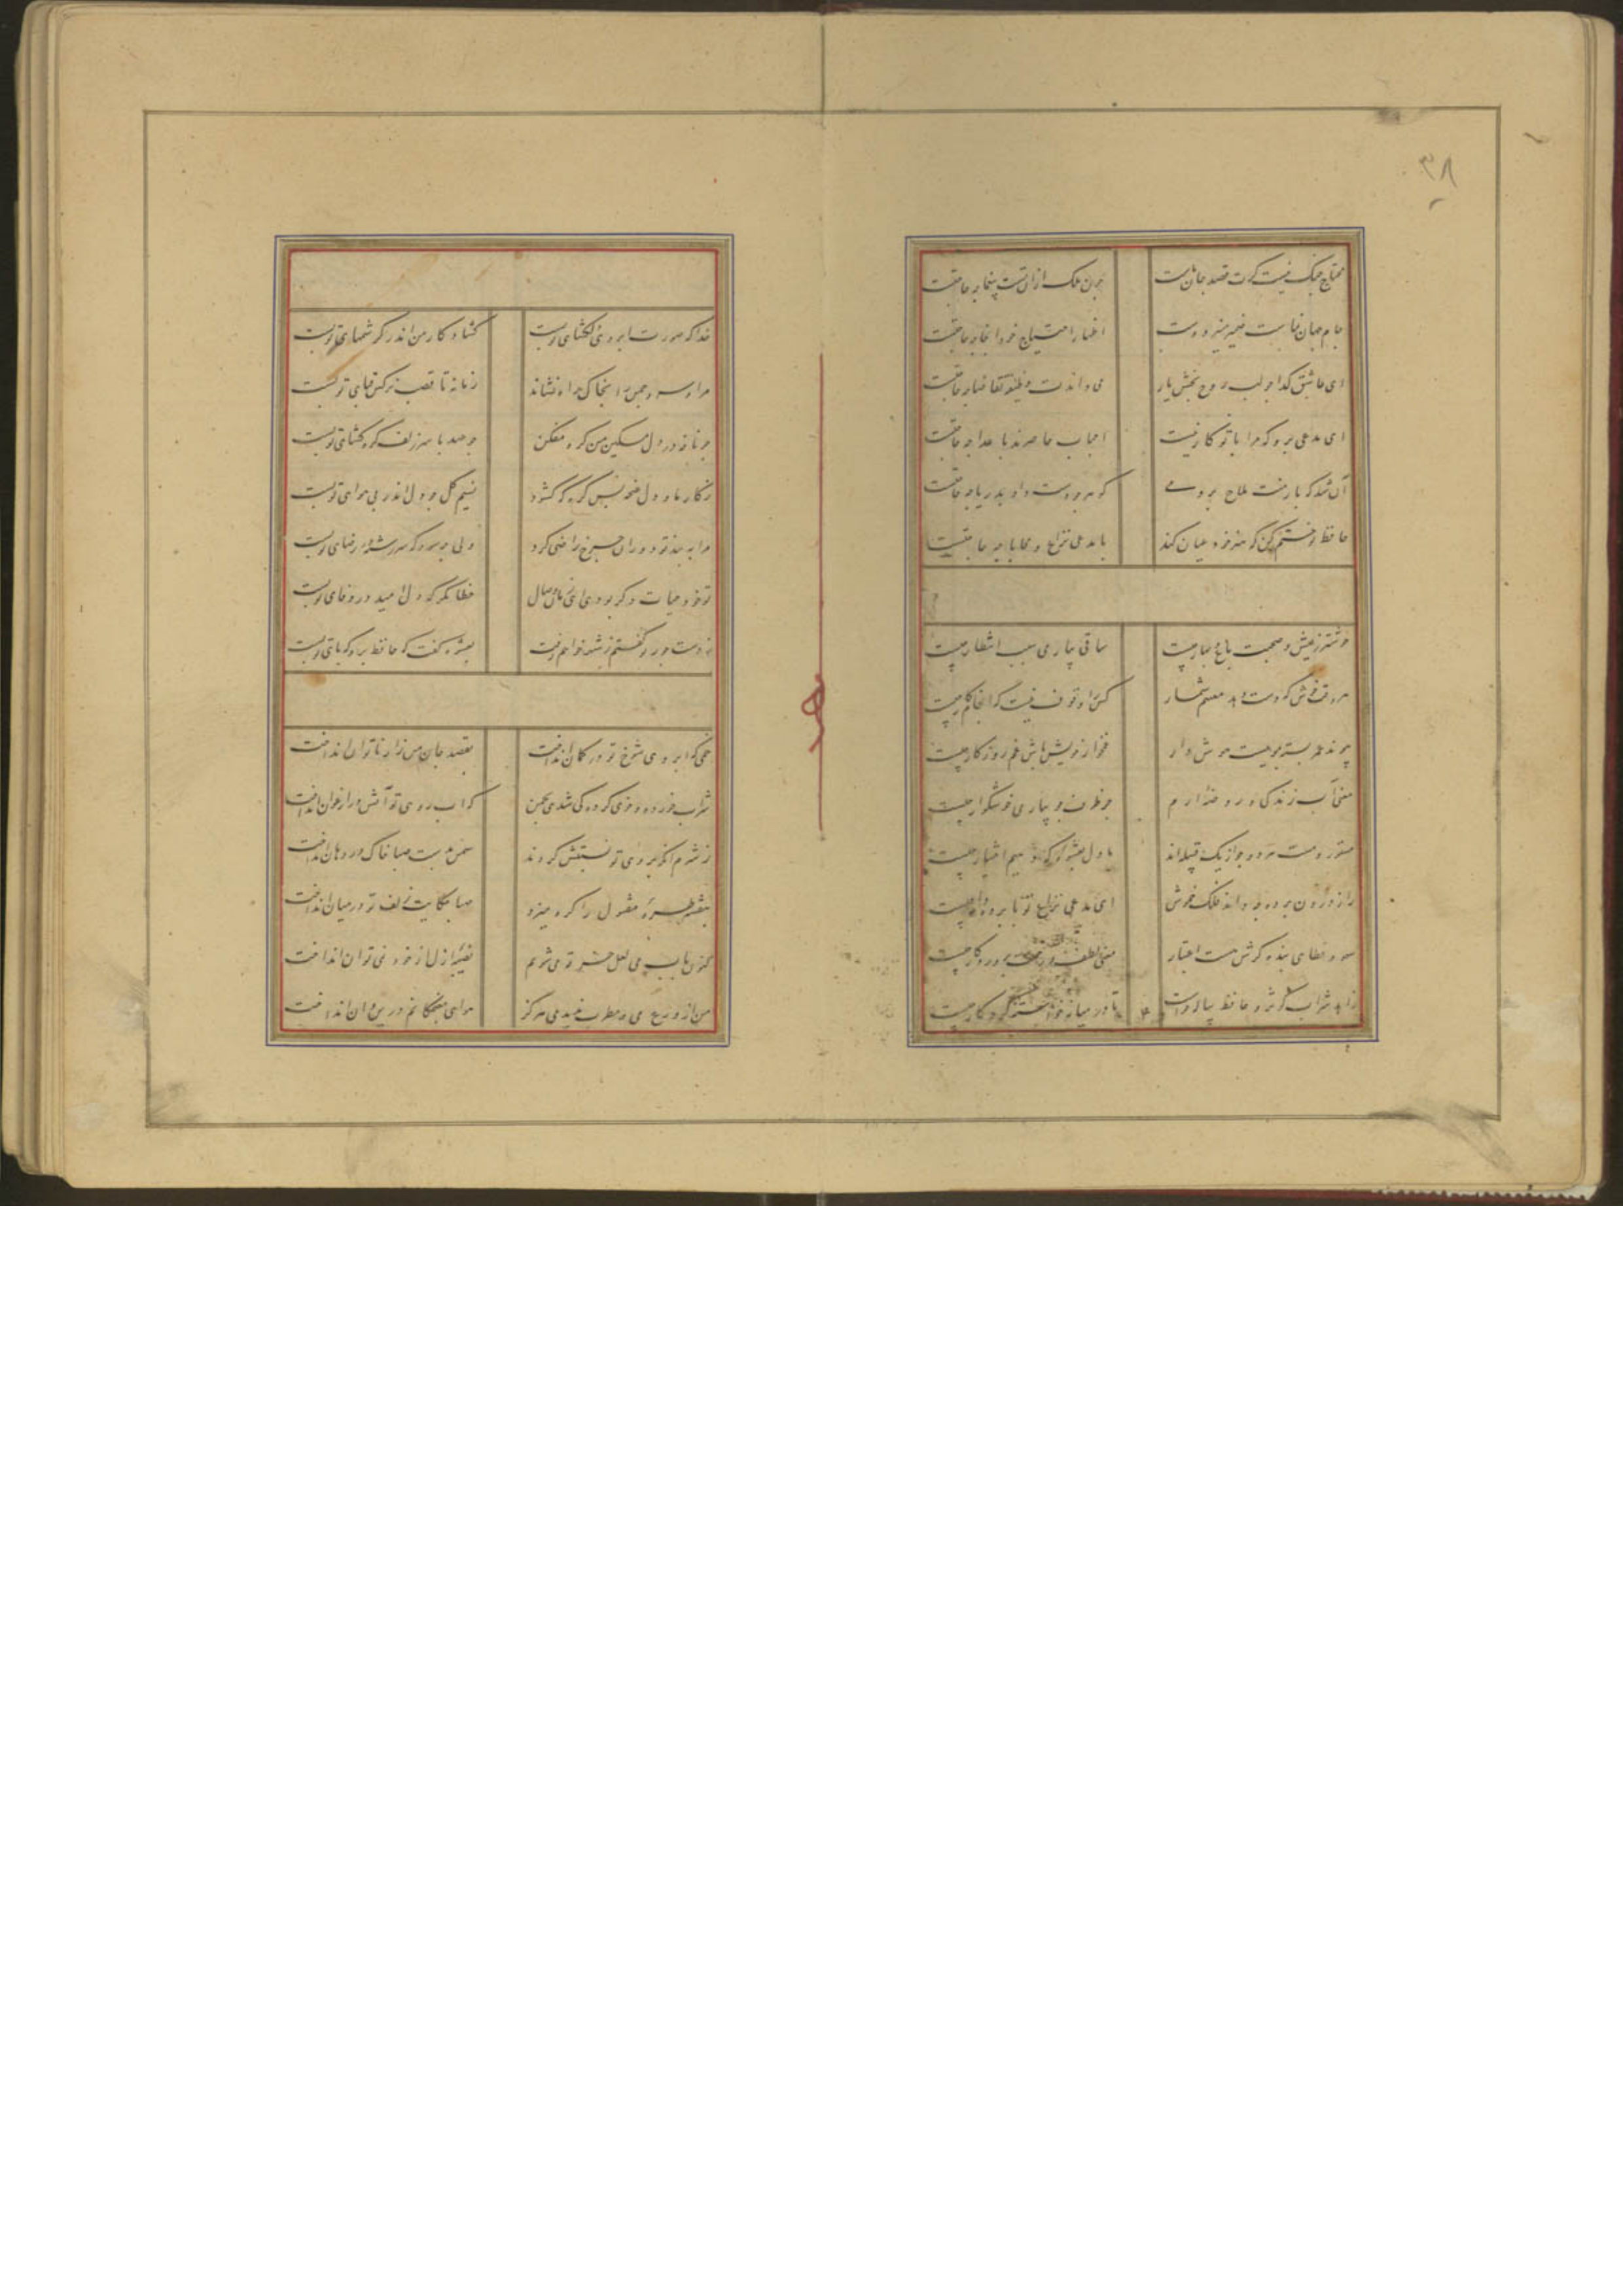 ۳۸
محتاج جنگ نیست گرت قصد جان ماست چون ملک ازان تست بیغما چه حاجتست
جام جهان نماست ضمیر منیر دوست اظهار احتیاج خود آنجا چه حاجتست
ای عاشق گدا چو لب روح بخش یار می داندت وظیفه تقاضا چه حاجتست
ای مدعی برو که مرا با تو کار نیست احباب حاضرند با عدا چه حاجتست
آن شد که بار منت ملاح بردمی گوهر چو دست داد بدریا چه حاجتست
حافظ تو ختم کن که هنر خود عیان کند با مدعی نزاع و محابا چه حاجتست
خوشتر ز عیش و صحبت باغ بهار چیست ساقی بیار می سبب انتظار چیست
هر وقت خوش که دست دهد مغتنم شمار کس را وقوف نیست که انجام کار چیست
پیوند عمر بسته بمویست هوش دار غمخوار خویش باش غم روزگار چیست
معنی آب زندگی و روضه ارم جز طرف جویبار می خوشگوار چیست
مستور و مست هر دو چو از یک قبیله اند ما دل بعشوه که دهیم اختیار چیست
راز درون پرده چه داند فلک خموش ای مدعی نزاع تو با پرده دار چیست
سهو و خطای بنده گرش هست اعتبار معنی لطف و رحمت پروردگار چیست
زاهد شراب کوثر و حافظ پیاله خواست تا در میانه خواسته کردگار چیست
خدا که صورت ابروی دلگشای تو بست گشاد کار من اندر کرشمهای تو بست
مرا و سرو چمن را بخاک راه نشاند زمانه تا قصب نرگس قبای تو بست
چو نافه در دل مسکین من گره مفکن چو عهد با سر زلف گره گشای تو بست
ز کار ما و دل غنچه بس گره که گشود نسیم گل چو دل اندر پی هوای تو بست
مرا به بند تو دوران چرخ راضی کرد ولی چه سود که سر رشته در رضای تو بست
تو خود حیات دگر بودی ای زمان وصال خطا نگر که دل امید در وفای تو بست
ز دست جور تو گفتم ز شهر خواهم رفت بعشوه گفت که حافظ برو که پای تو بست
خمی که ابروی شوخ تو در کمان انداخت بقصد جان من زار ناتوان انداخت
شراب خورده و خوی کرده کی شدی بچمن که آب روی تو آتش در ارغوان انداخت
ز شرم آنکه بروی تو نسبتش کردند سمن بدست صبا خاک در دهان انداخت
بنفشه طره مفتول را گره میزد صبا حکایت زلف تو در میان انداخت
کنون بآب می لعل خرقه می شویم نصیبه ازل از خود نمی توان انداخت
من از ورع می و مطرب ندیدمی هرگز هوای مغبچگانم در این و آن انداخت